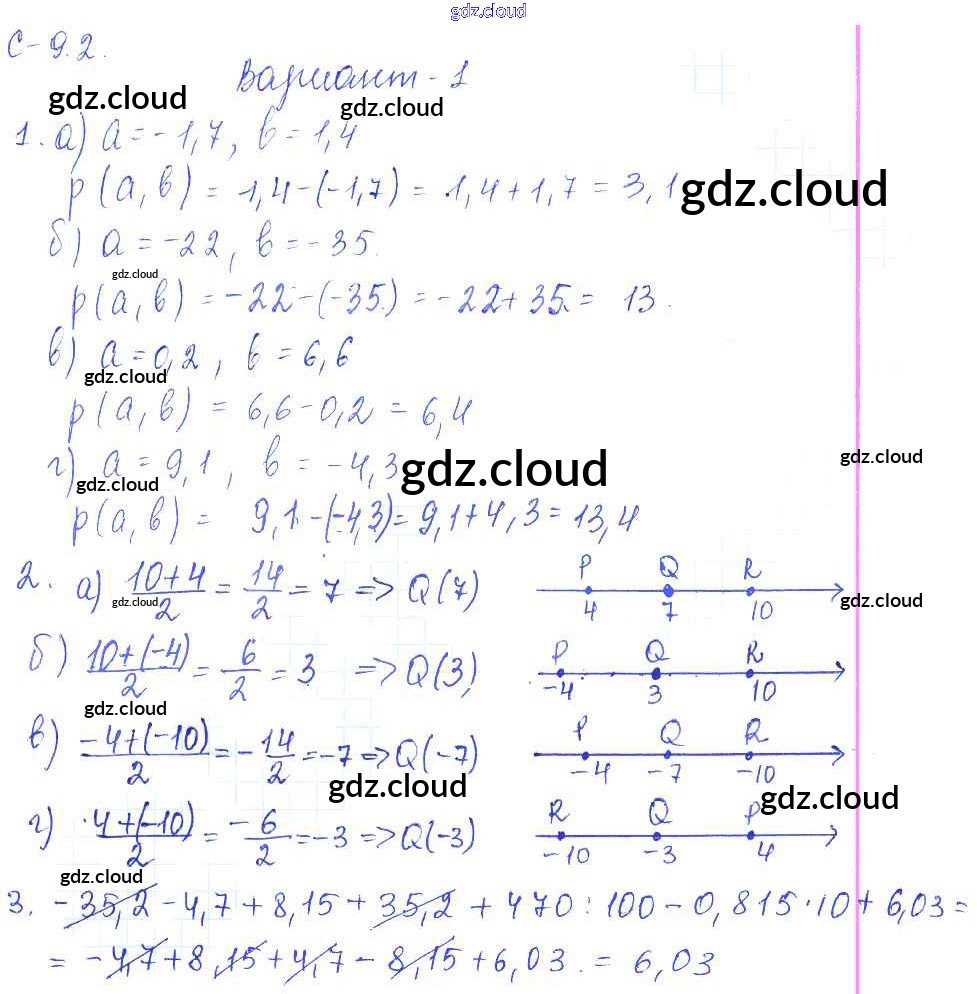 gdz.cloud
С-9.2.
Вариант-1
gdz.cloud gdz.cloud
1. а) a = -1,7, b = 1,4
p(a,b) = 1,4-(-1,7) = 1,4+1,7 = 3,1
gdz.cloud
б) a = -22, b = -35.
gdz.cloud
p(a,b) = -22-(-35) = -22+35 = 13.
в) a = 0,2, b = 6,6
gdz.cloud
p(a,b) = 6,6-0,2 = 6,4
г) a = 9,1, b = -4,3
gdz.cloud gdz.cloud gdz.cloud
p(a,b) = 9,1-(-4,3) = 9,1+4,3 = 13,4
2. а) (10+4)/2 = 14/2 = 7 => Q(7) P Q R
gdz.cloud 4 7 10 gdz.cloud
б) (10+(-4))/2 = 6/2 = 3 => Q(3) P Q R
-4 3 10
gdz.cloud
в) (-4+(-10))/2 = -14/2 = -7 => Q(-7) P Q R
-4 -7 -10
gdz.cloud gdz.cloud
г) (4+(-10))/2 = -6/2 = -3 => Q(-3) R Q P
-10 -3 4
gdz.cloud
3. -35,2 - 4,7 + 8,15 + 35,2 + 470:100 - 0,815·10 + 6,03 =
= -4,7 + 8,15 + 4,7 - 8,15 + 6,03 = 6,03